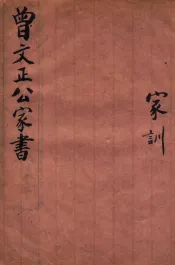 曾文正公家書
家訓